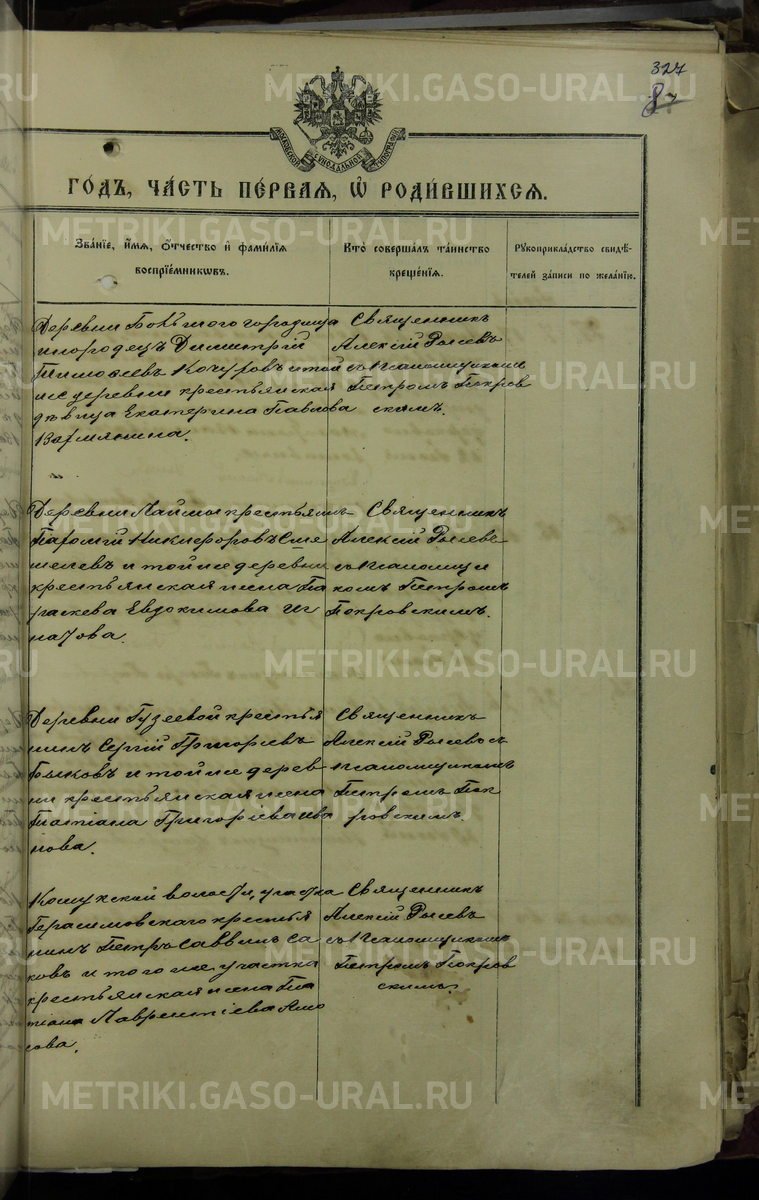 327
87
МОСКОВСКОЙ СѴНОДАЛЬНОЙ ТИПОГРАФІИ
ГО́ДЪ, ЧА́СТЬ ПЕ́РВАЯ, Ѽ РОДИ́ВШИХСЯ.
Зва́ніе, и҆́мя, ѻ҆́тчество и҆ фами́лія
воспріе́мникѡвъ.
Кто̀ соверша́лъ та́инство
креще́нія.
Рꙋкоприкла́дство свидѣ́-
телей за́писи по жела́нію.
Деревни Большого городища
инородецъ Димитрій
Тимоѳеевъ Кочуровъ и той
же деревни крестьянская
дѣвица Екатерина Павлова
Вармянина.
Священникъ
Алексій Рысевъ
съ псаломщикомъ
Петромъ Покров
скимъ.
Деревни Лаймы крестьянъ
Никифоровъ
и той же деревни
крестьянская жена Па
раскева Евдокимова Иг
натова.
Священникъ
Алексій Рысевъ
съ псаломщи
комъ Петромъ
Покровскимъ.
Деревни Гузеевой крестья
нинъ Сергій Григорьевъ
Быковъ и той же дерев
ни крестьянская жена
Татіана Григоріева Ива
нова.
Священникъ
Алексій Рысевъ съ
псаломщикомъ
Петромъ Пок
ровскимъ.
волости, участка
Герасимовскаго крестья
нинъ Петръ Саввинъ Са
ковъ и того же участка
крестьянская жена Та
тіана Лаврентіева Амо
сова.
Священникъ
Алексій Рысевъ
съ псаломщикомъ
Петромъ Покров
скимъ.
METRIKI.GASO-URAL.RU